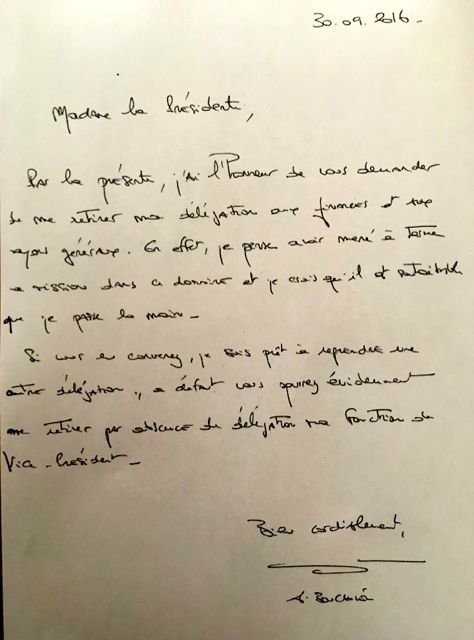 30.09.2016-
Madame la Présidente,
Par la présente, j'ai l'Honneur de vous demander
de me retirer ma délégation aux finances et aux
moyens généraux. En effet, je pense avoir mené à terme
ma mission dans ce domaine et je crois qu'il est souhaitable
que je passe la main-
Si vous en convenez, je suis prêt à reprendre une
autre délégation, à défaut vous pourrez évidemment
me retirer par absence de délégation ma fonction de
Vice-Président-
Bien cordialement,